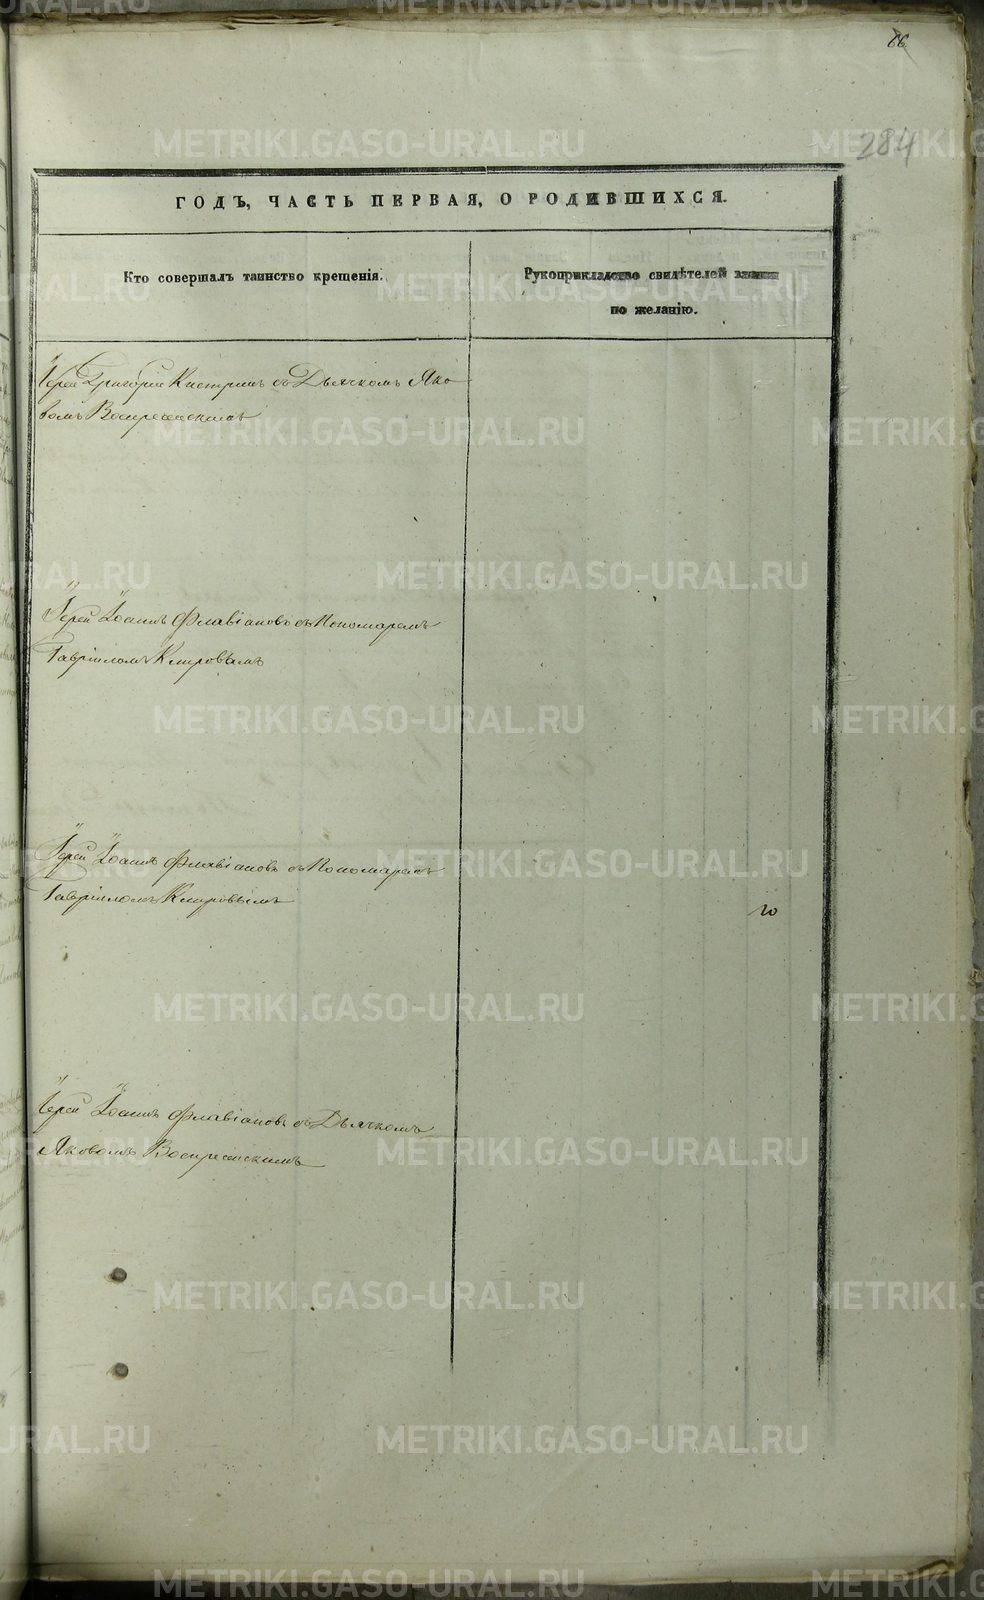 66
284
ГОДЪ, ЧАСТЬ ПЕРВАЯ, О РОДИВШИХСЯ.
Кто совершалъ таинство крещенія.
Рукоприкладство свидѣтелей записи
по желанію.
Іерей Григорій съ Дьячкомъ Яко
вомъ Воскресенскимъ
Іерей Іоаннъ Флавіановъ съ Пономаремъ
Гавріиломъ Кипровымъ
Іерей Іоаннъ Флавіановъ съ Пономаремъ
Гавріиломъ Кипровымъ
Іерей Іоаннъ Флавіановъ съ Дьячкомъ
Яковомъ Воскресенскимъ
METRIKI.GASO-URAL.RU